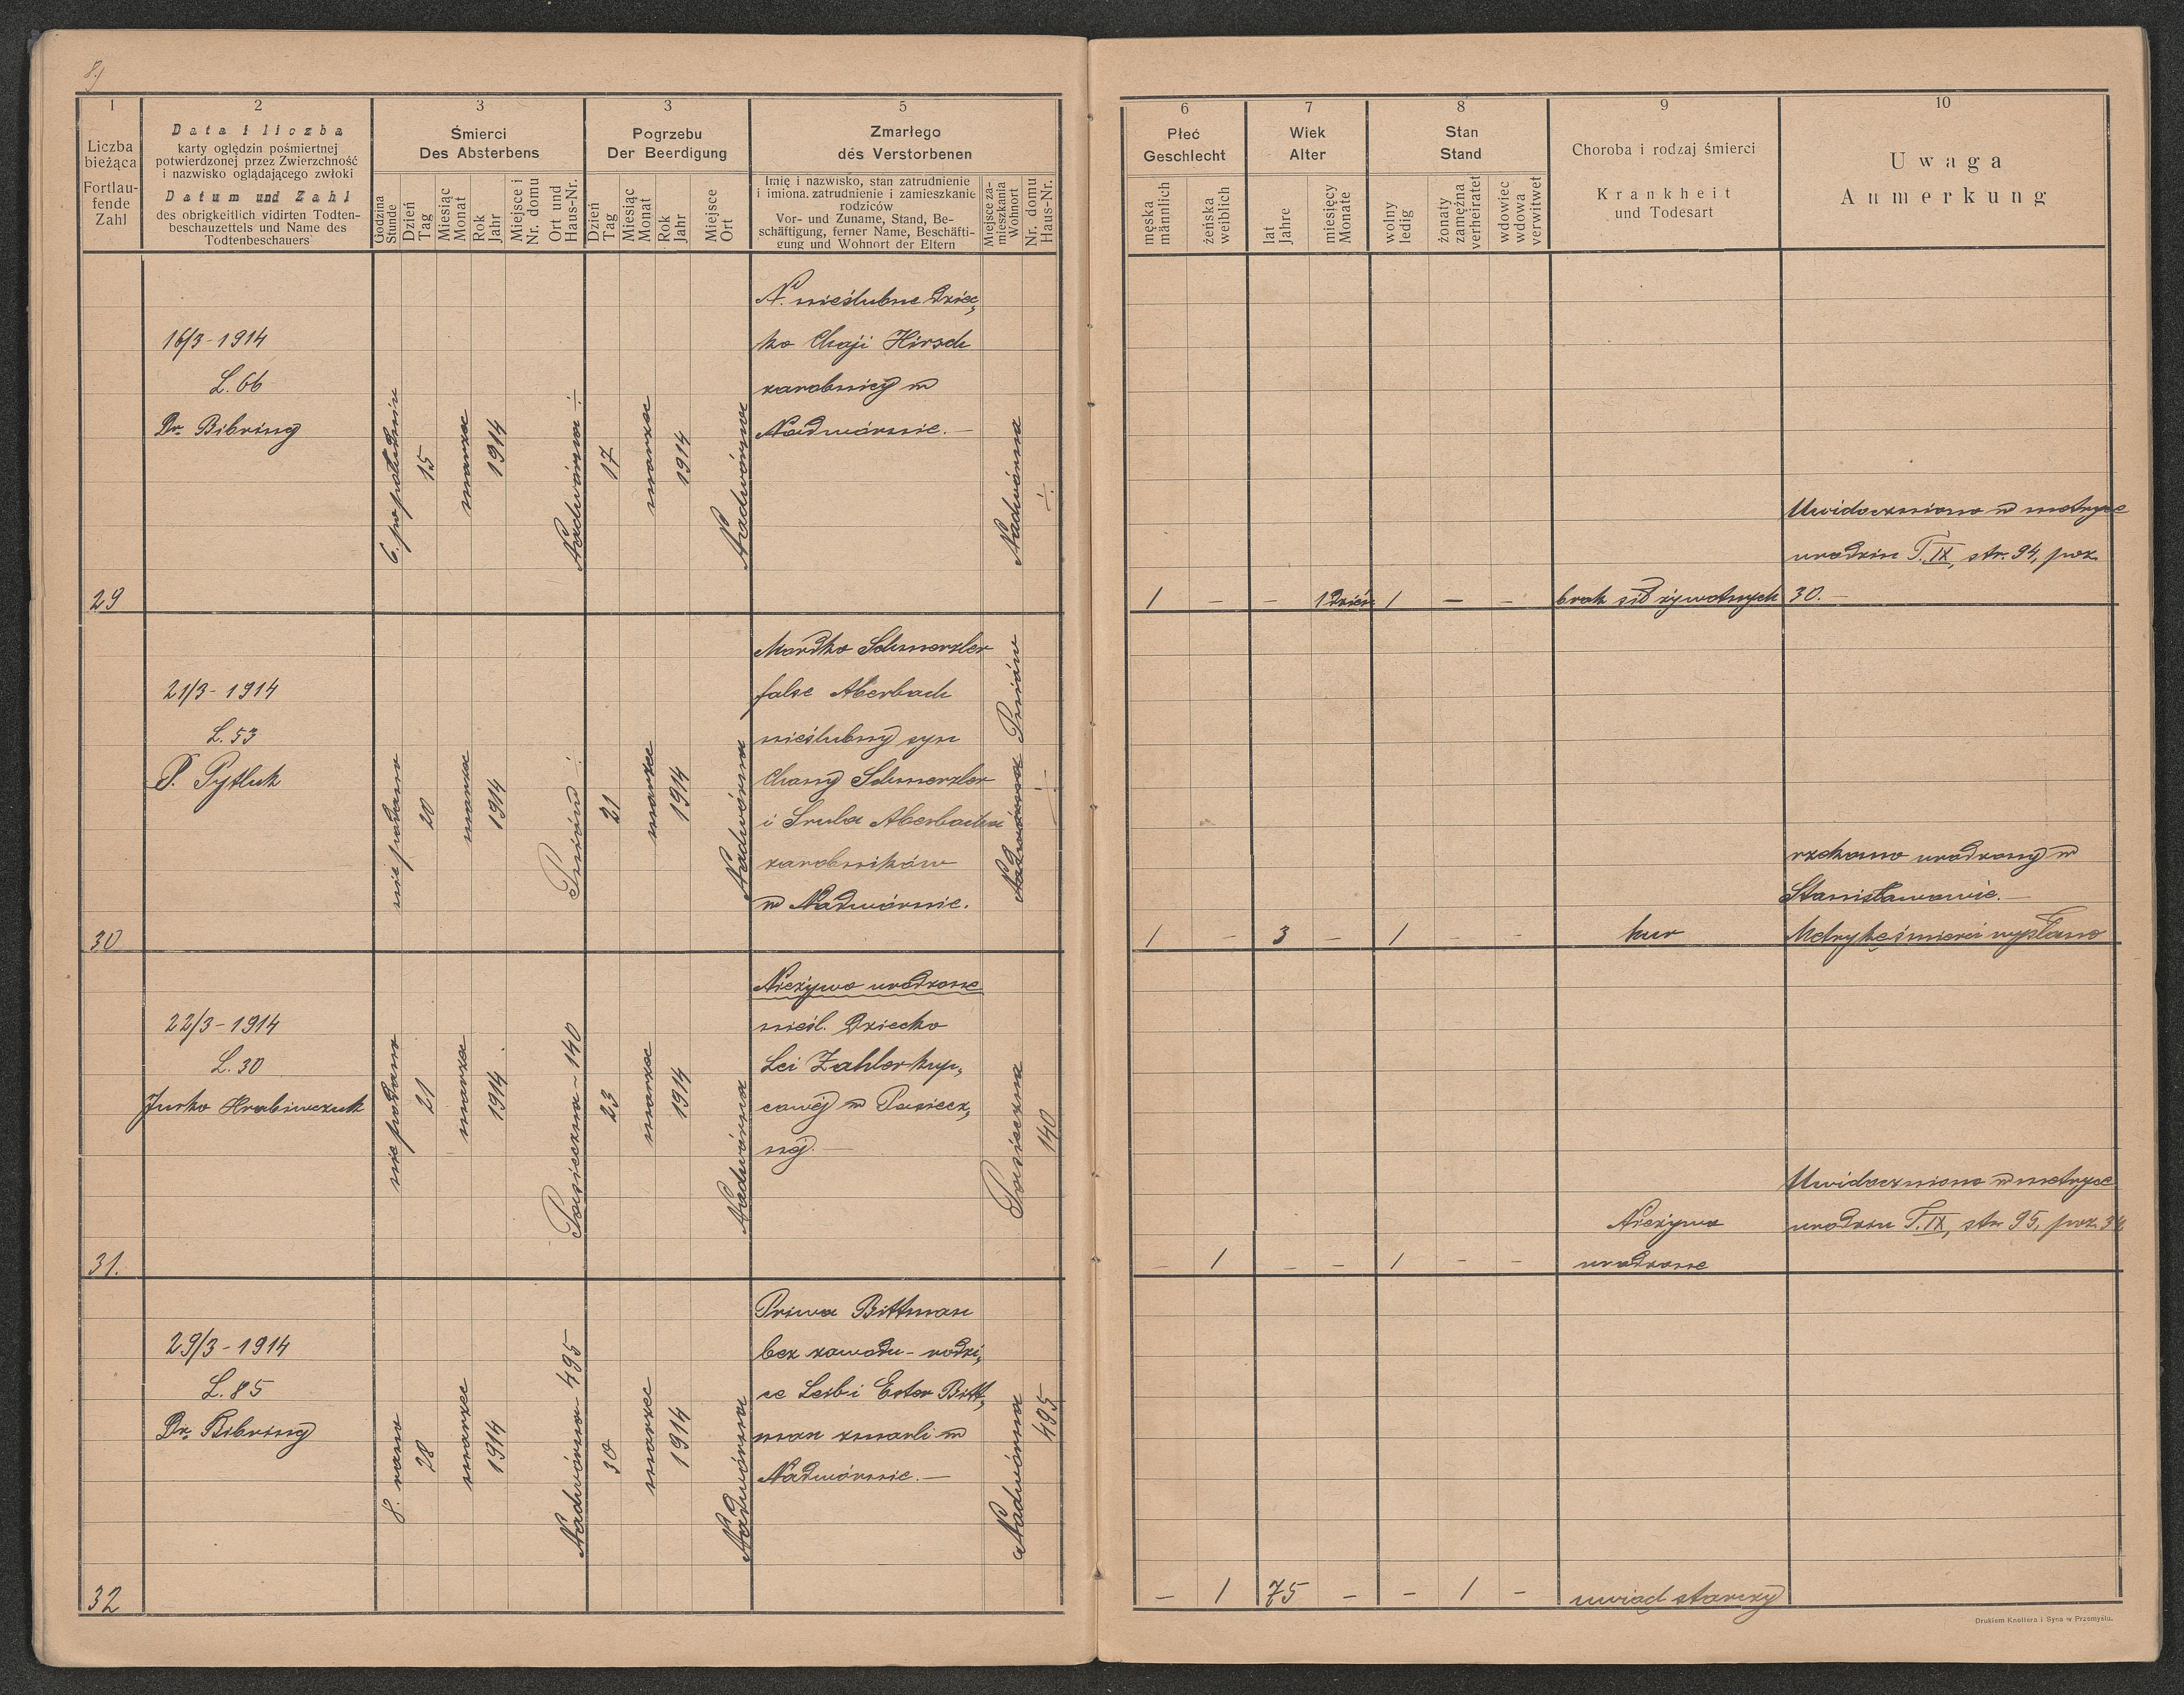 8.)
1
Liczba
bieżąca
Fortlau-
fende
Zahl
2
Data i liczba
karty oględzin pośmiertnej
potwierdzonej przez Zwierzchność
i nazwisko oglądającego zwłoki
Datum und Zahl
des obrigkeitlich vidirten Todten-
beschauzettels und Name des
Todtenbeschauers
3
Śmierci
Des Absterbens
Godzina
Stunde
Dzień
Tag
Miesiąc
Monat
Rok
Jahr
Miejsce i
Nr. domu
Ort und
Haus-Nr.
3
Pogrzebu
Der Beerdigung
Dzień
Tag
Miesiąc
Monat
Rok
Jahr
Miejsce
Ort
5
Zmarłego
dés Verstorbenen
Imię i nazwisko, stan zatrudnienie
i imiona. zatrudnienie i zamieszkanie
rodziców
Vor- und Zuname, Stand, Be-
schäftigung, ferner Name, Beschäfti-
gung und Wohnort der Eltern
Miejsce za-
mieszkania
Wohnort
Nr. domu
Haus-Nr.
6
Płeć
Geschlecht
męska
männlich
żeńska
weiblich
7
Wiek
Alter
lat
Jahre
miesięcy
Monate
8
Stan
Stand
wolny
ledig
żonaty
zamężna
verheiratet
wdowiec
wdowa
verwitwet
9
Choroba i rodzaj śmierci
Krankheit
und Todesart
10
Uwaga
Anmerkung
29
16/3-1914
L. 66
Dr. Bibring
6. po południu
15
marzec
1914
Nadwórna ÷
17
marzec
1914
Nadwórna
N. nieślubne dziec„
ko Chaji Hirsch
zarobnicy w
Nadwórnie. —
Nadwórna
÷
1 – – 1 dzień 1 – –
brak sił żywotnych
Uwidoczniono w metryce
urodzin T. IX, str. 94, poz.
30. —
30
21/3-1914
L. 53
P. Pytluk
nie podano
20
marzec
1914
Pniów ÷
21
marzec
1914
Nadwórna
Mordko Schmerzler
false Aberbach
nieślubny syn
Chany Schmerzler
i Srula Aberbacha
zarobników
w Nadwórnie.
Nadwórna Pniów
÷
1 – 3 – 1 – –
kur
rzekomo urodzony w
Stanisławowie. —
Metrykę śmierci wysłano
31.
22/3-1914
L. 30
Jurko Hrabiwczuk
nie podano
21
marzec
1914.
Pasieczna – 140
23
marzec
1914
Nadwórna
Nieżywo urodzone
nieśl. dziecko
Lei Zahler kup„
cowej w Pasiecz„
nej. —
Pasieczna
140
– 1 – – 1 – –
Nieżywo
urodzone
Uwidoczniono w metryce
urodzin T. IX, str. 95, poz. 34
32
29/3-1914
L. 85
Dr. Bibring
8. rano
28
marzec
1914
Nadwórna – 495
30
marzec
1914
Nadwórna
Priwa Bittman
bez zawodu – rodzi„
ce Leib i Ester Bitt„
man zmarli w
Nadwórnie. —
Nadwórna
495
– 1 75 – – 1 –
uwiąd starczy
Drukiem Knollera i Syna w Przemyślu.